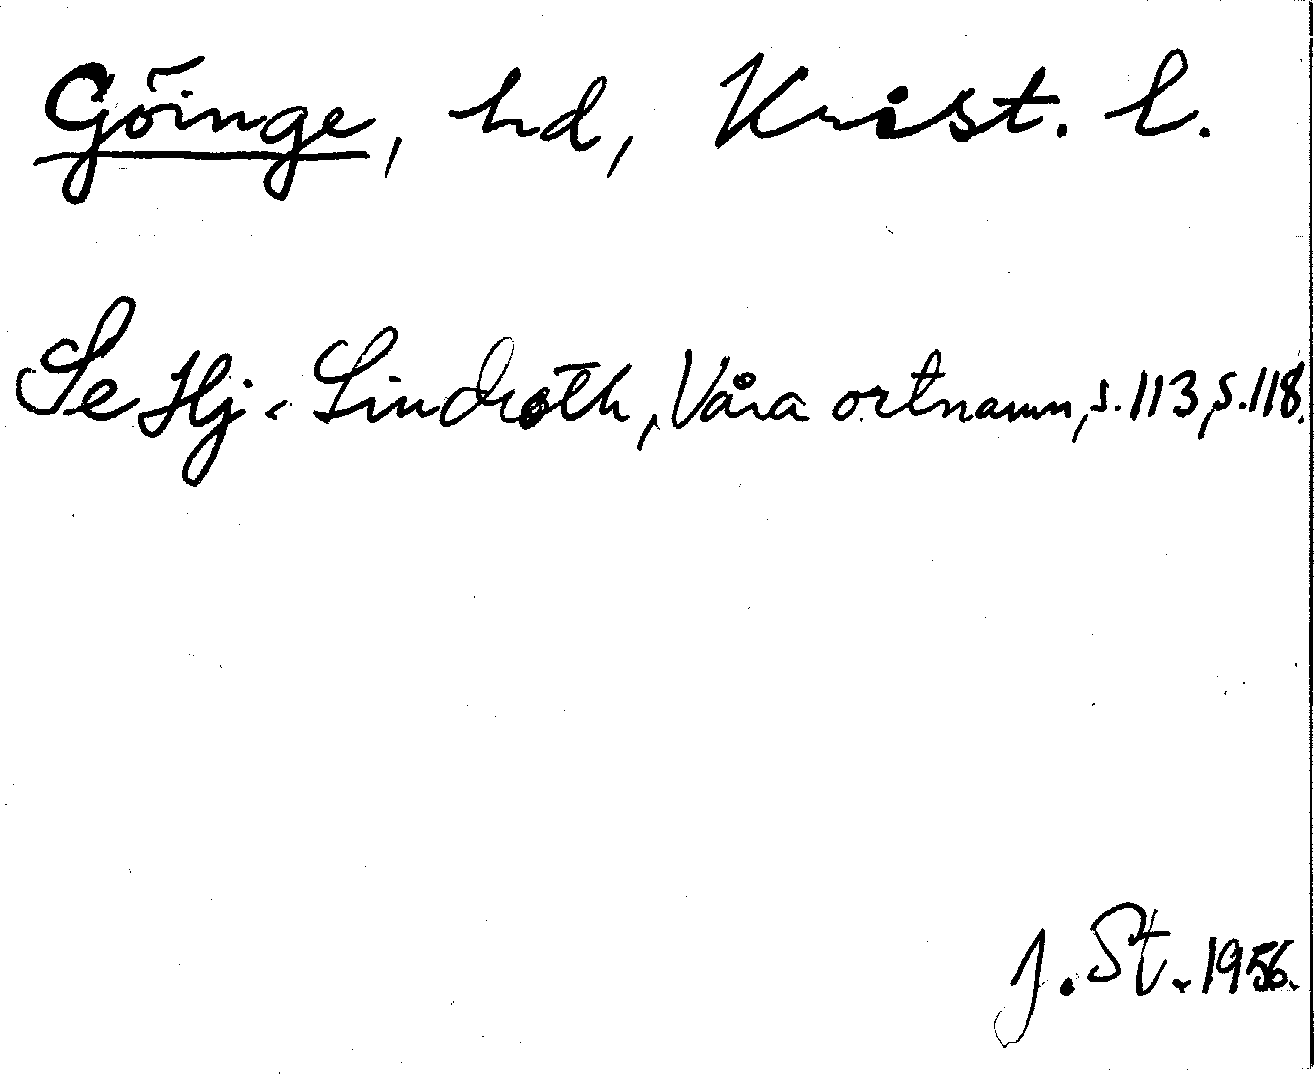 Göinge, hd, Krist. l.
Se Hj. Lindroth, Våra ortnamn, s. 113, s. 118.
J. St. 1956.